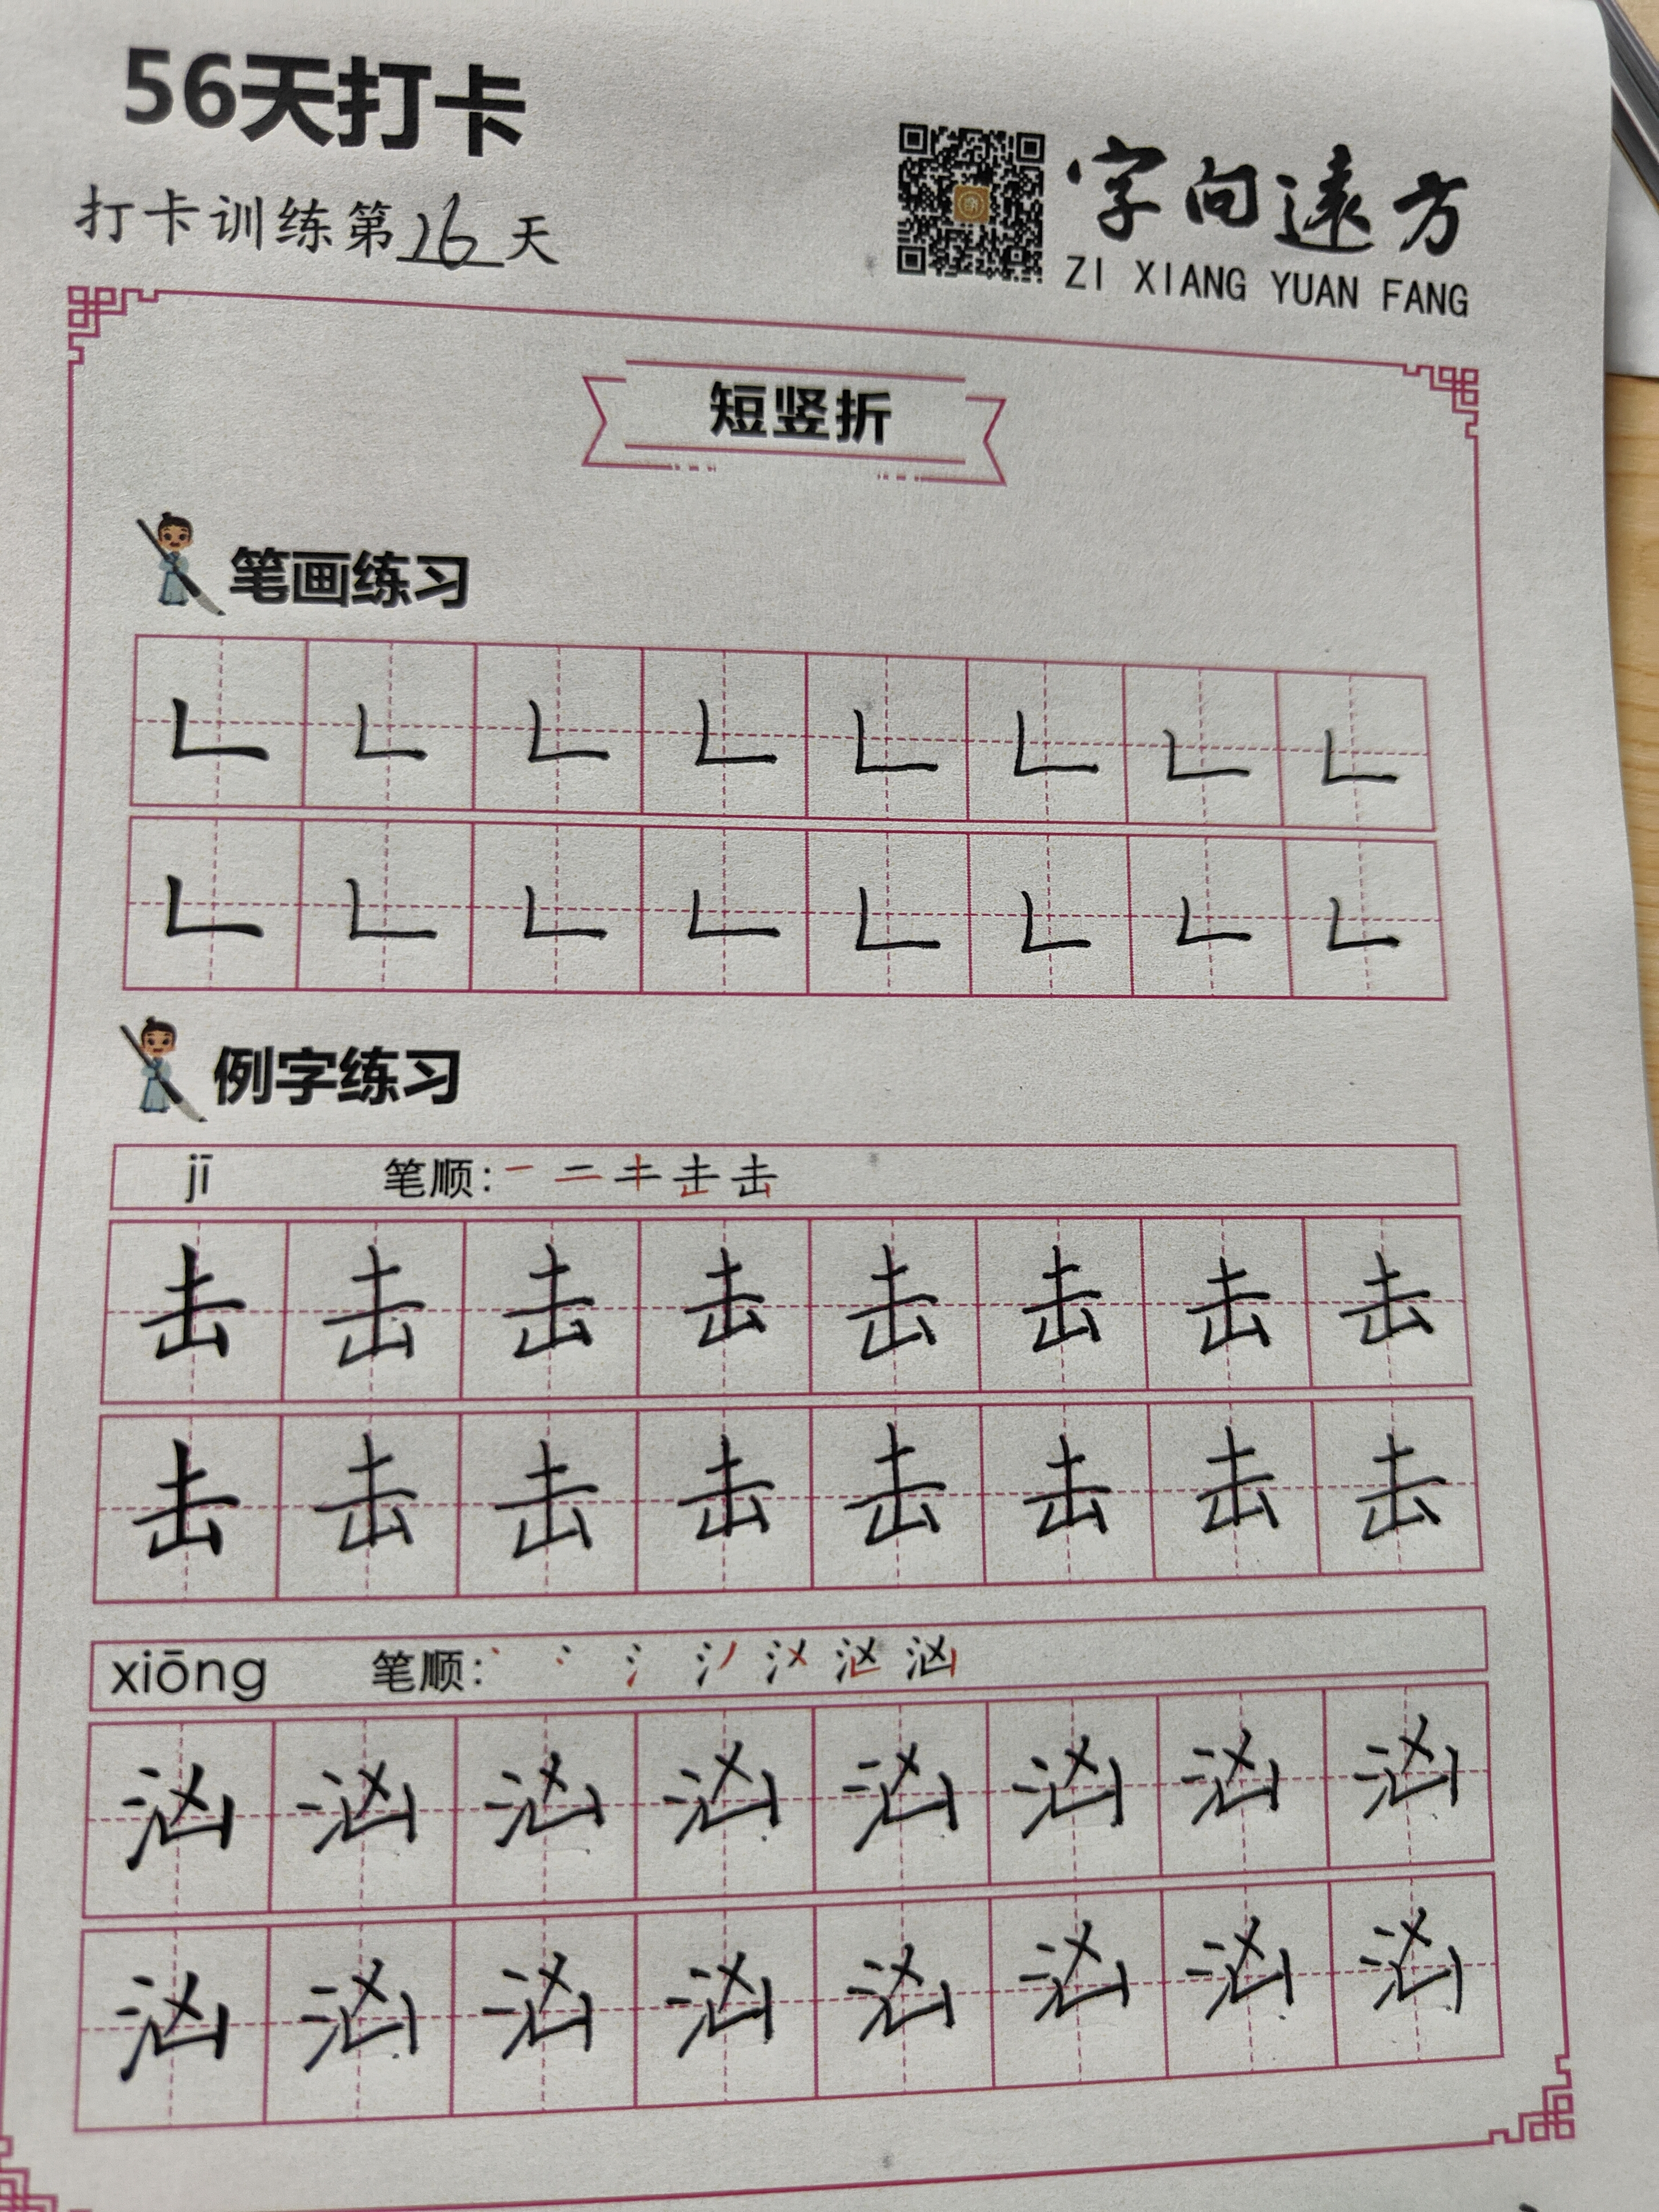 56天打卡
打卡训练第16天
字向遠方
ZI XIANG YUAN FANG
短竖折
笔画练习
𠃊 𠃊 𠃊 𠃊 𠃊 𠃊 𠃊 𠃊
𠃊 𠃊 𠃊 𠃊 𠃊 𠃊 𠃊 𠃊
例字练习
jī 笔顺:
击 击 击 击 击 击 击 击
击 击 击 击 击 击 击 击
xiōng 笔顺:
汹 汹 汹 汹 汹 汹 汹 汹
汹 汹 汹 汹 汹 汹 汹 汹